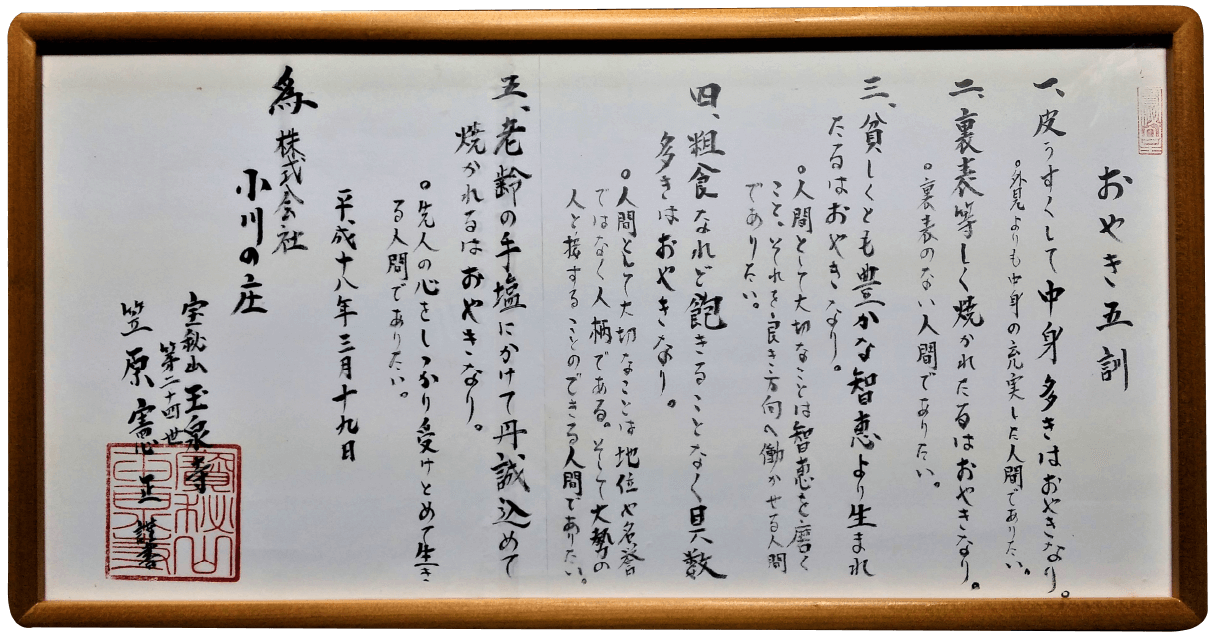 おやき五訓
一、皮うすくして中身多きはおやきなり。
。外見よりも中身の充実した人間でありたい。
二、裏表等しく焼かれたるはおやきなり。
。裏表のない人間でありたい。
三、貧しくとも豊かな智恵より生まれ
たるはおやきなり。
。人間として大切なことは智恵を磨く
こと、それを良き方向へ働かせる人間
でありたい。
四、粗食なれど飽きることなく具数
多きはおやきなり。
。人間として大切なことは地位や名誉
ではなく人柄である。そして大勢の
人と接することのできる人間でありたい。
五、老齢の手塩にかけて丹誠込めて
焼かれるはおやきなり。
。先人の心をしっかり受けとめて生き
る人間でありたい。
平成十八年三月十九日
為 株式会社
小川の庄
宝秘山 玉泉寺
第二十四世
笠原憲正 謹書